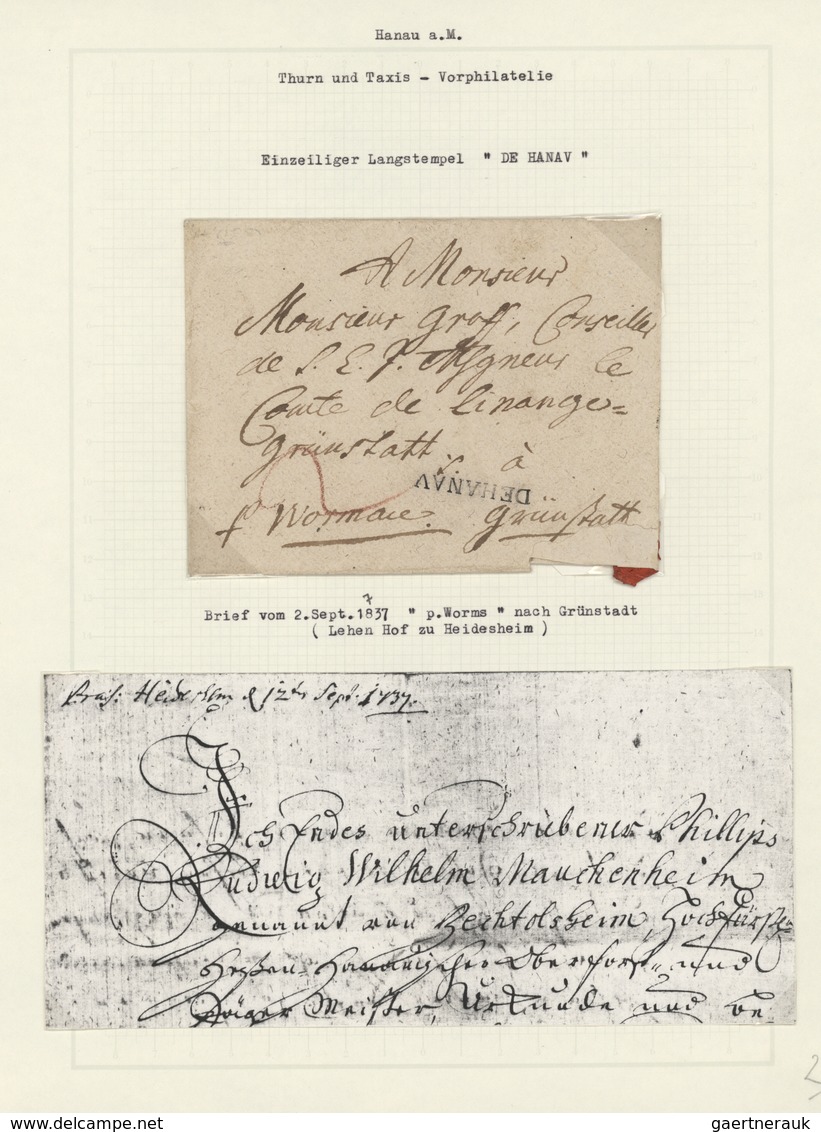 Hanau a.M.
Thurn und Taxis - Vorphilatelie
Einzeiliger Langstempel " DE HANAV "
A Monsieur
Monsieur Groff, Conseiller
de S. E. Msgneur le
Comte de Linange=
Grünstatt. à
DE HANAV
p Wormace. Grünstatt
7
Brief vom 2.Sept.1837 " p.Worms " nach Grünstadt
( Lehen Hof zu Heidesheim )
12ten Sept. 1737.
Ich Endes unterschriebener Phillips
Ludwig Wilhelm Mauchenheim
genannt von Bechtolsheim, Hochfürstl.
Heßen-Hanauischer Oberforst- und
Jäger Meister, Urkunde und be-
delcampe.net
gaertnerauk